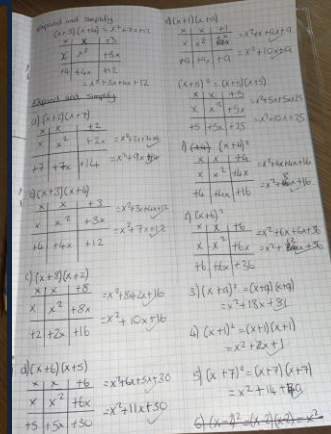 Expand and simplify
(x+3)(x+4) = x²+7x+12
x x +3
x x² +3x
+4 +4x +12
= x²+3x+4x+12
Expand and simplify
a) (x+2)(x+7)
x x +2
x x² +2x
+7 +7x +14
= x²+9x+14
b) (x+3)(x+4)
x x +3
x x² +3x
+4 +4x +12
= x²+3x+4x+12
= x²+7x+12
c) (x+8)(x+2)
x x +8
x x² +8x
+2 +2x +16
= x²+8x+2x+16
= x²+10x+16
d) (x+6)(x+5)
x x +6
x x² +6x
+5 +5x +30
= x²+6x+5x+30
= x²+11x+30
(x+1)(x+9)
x x +1
x x²
+9 +9x +9
= x²+x+9x+9
= x²+10x+9
(x+5)² = (x+5)(x+5)
x x +5
x x² +5x
+5 +5x +25
= x²+5x+5x+25
= x²+10x+25
1) (x+4)²
x x +4
x x² +4x
+4 +4x +16
= x²+4x+4x+16
= x²+8x+16
2) (x+6)²
x x +6
x x² +6x
+6 +6x +36
= x²+6x+6x+36
= x²+12x+36
3) (x+9)² = (x+9)(x+9)
= x²+18x+81
4) (x+1)² = (x+1)(x+1)
= x²+2x+1
5) (x+7)² = (x+7)(x+7)
= x²+14+49